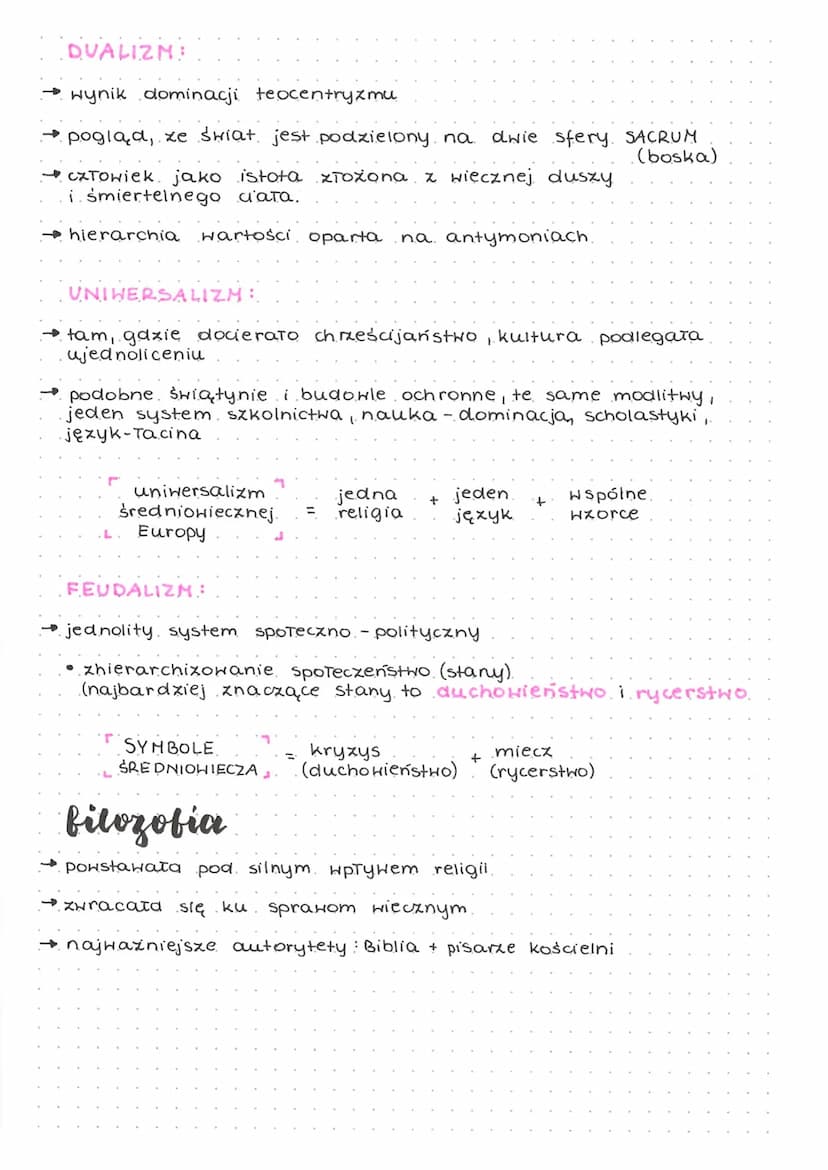 DUALIZM:
→ wynik dominacji teocentryzmu
→ pogląd, że świat jest podzielony na dwie sfery SACRUM
(boska)
→ człowiek jako istota złożona z wiecznej duszy
i śmiertelnego ciała.
→ hierarchia wartości oparta na antymoniach
UNIWERSALIZM:
→ tam, gdzie docierało chrześcijaństwo, kultura podlegała
ujednoliceniu
→ podobne świątynie i budowle ochronne, te same modlitwy,
jeden system szkolnictwa, nauka - dominacja, scholastyki,
język-łacina
uniwersalizm
średniowiecznej
Europy
= jedna religia + jeden język + wspólne wzorce
FEUDALIZM:
→ jednolity system społeczno - polityczny
• zhierarchizowanie społeczeństwo (stany)
(najbardziej znaczące stany to duchowieństwo i rycerstwo
SYMBOLE
ŚREDNIOWIECZA
= kryzys (duchowieństwo) + miecz (rycerstwo)
filozofia
→ powstawała pod silnym wpływem religii
→ zwracała się ku sprawom wiecznym
→ najważniejsze autorytety: Biblia + pisarze kościelni